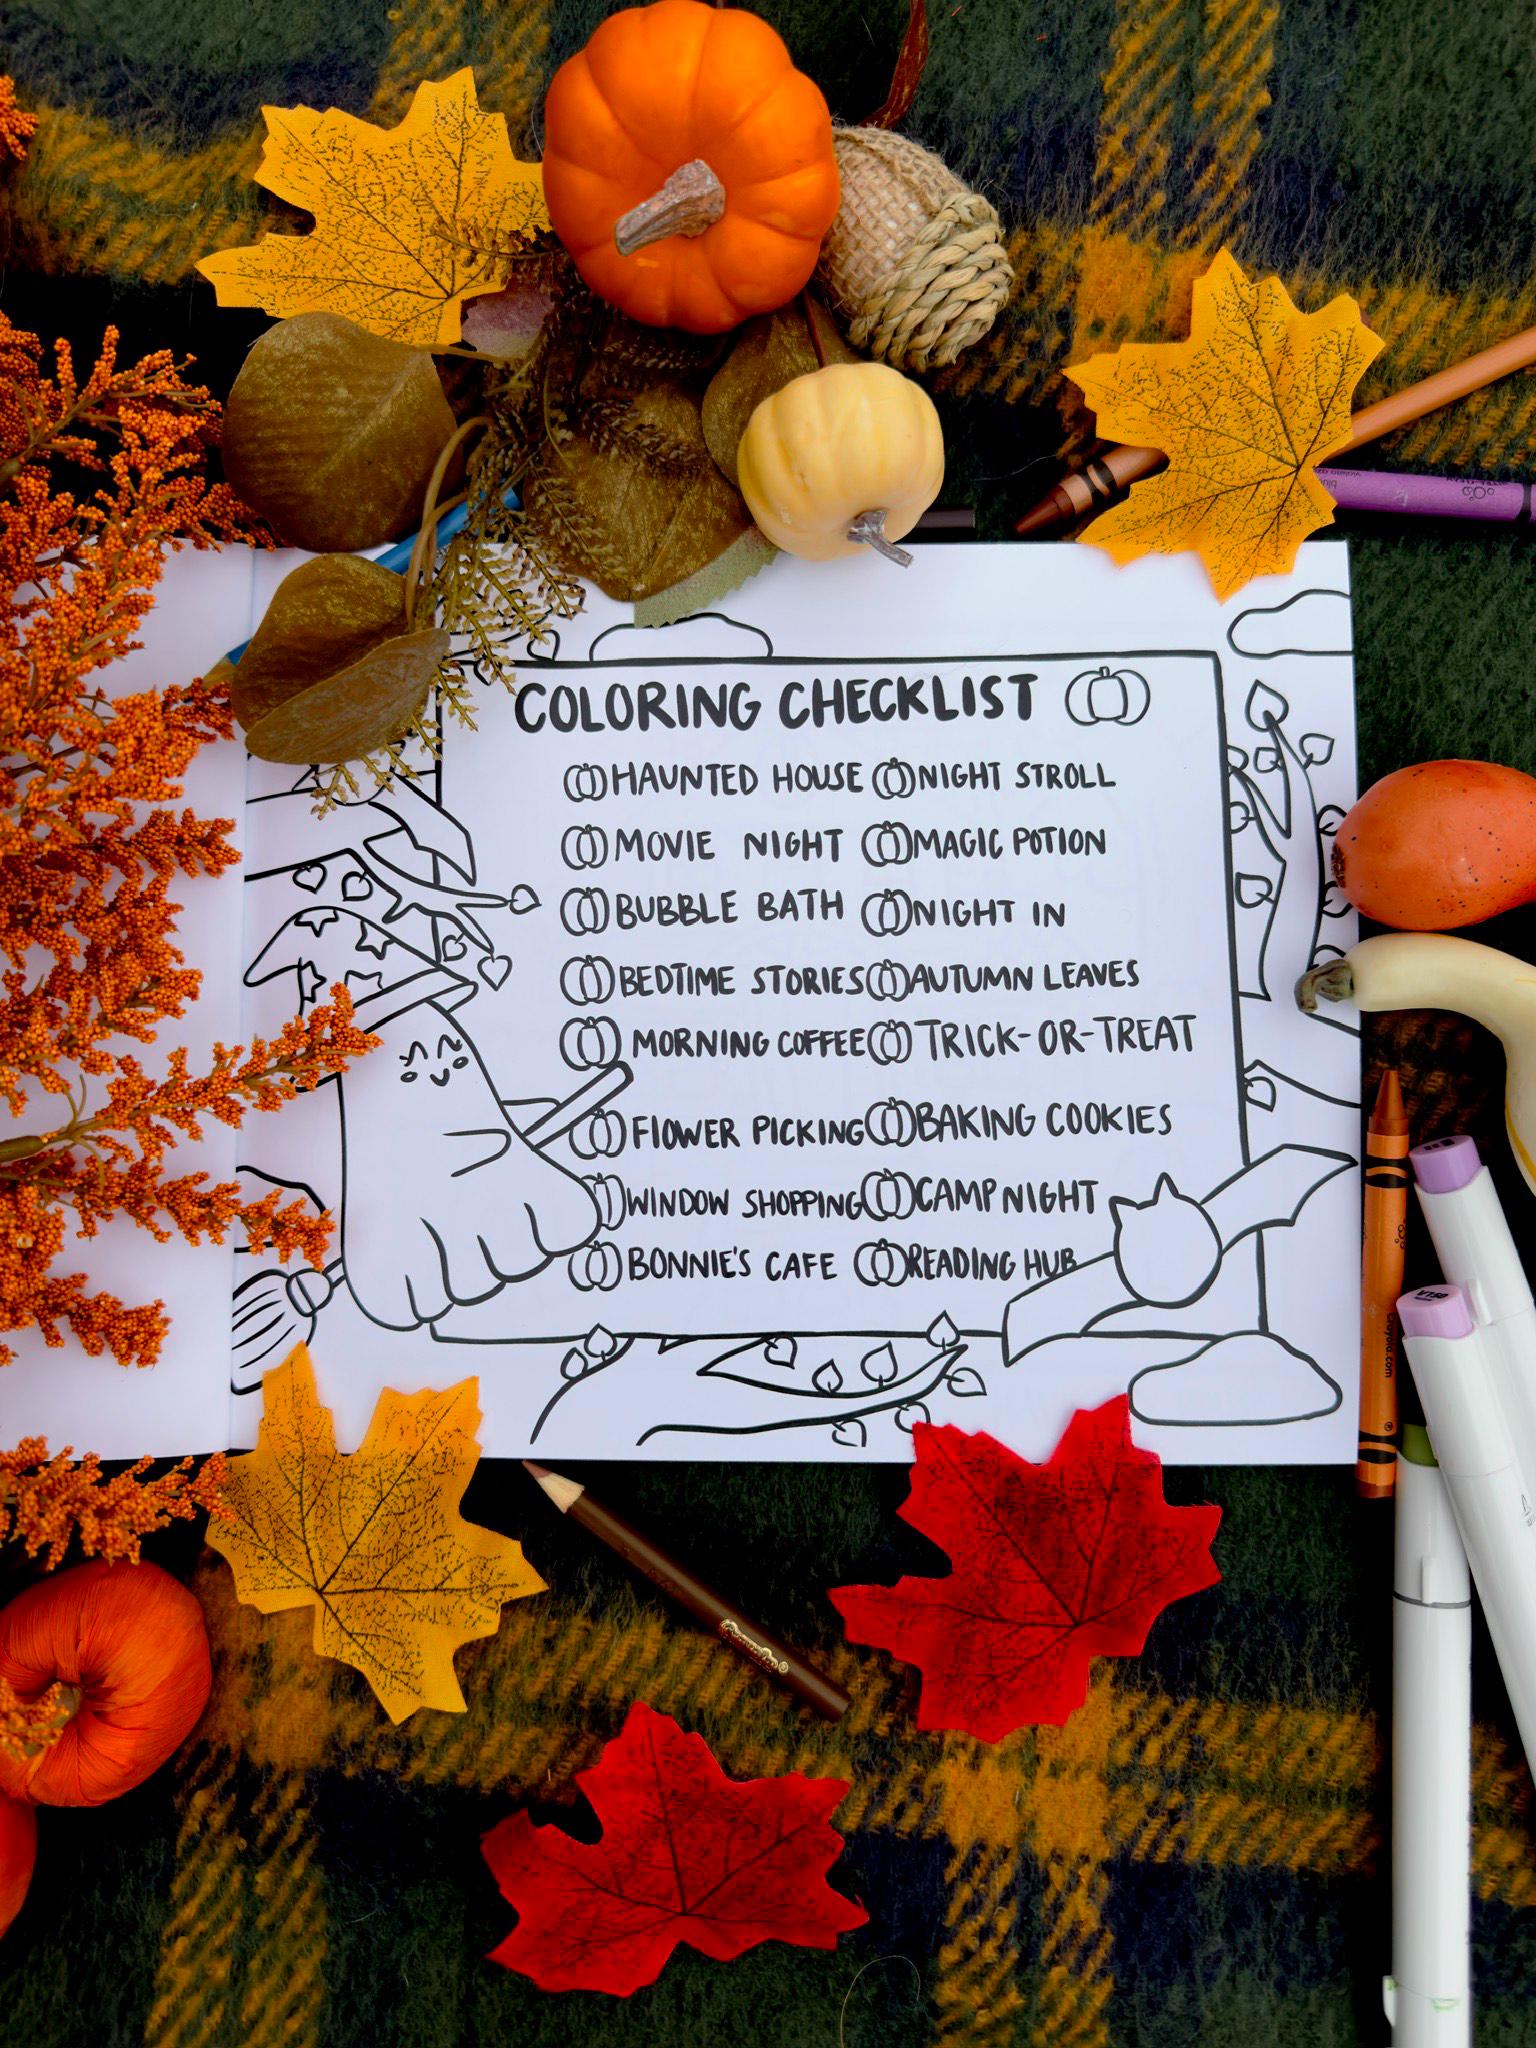 COLORING CHECKLIST
HAUNTED HOUSE
MOVIE NIGHT
BUBBLE BATH
BEDTIME STORIES
MORNING COFFEE
FLOWER PICKING
WINDOW SHOPPING
BONNIE'S CAFE
NIGHT STROLL
MAGIC POTION
NIGHT IN
AUTUMN LEAVES
TRICK-OR-TREAT
BAKING COOKIES
CAMP NIGHT
READING HUB
Crayola.com